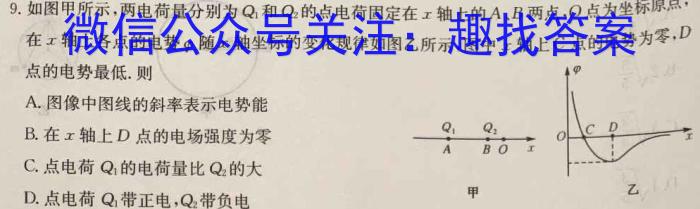 9. 如图甲所示,两电荷量分别为 Q₁ 和 Q₂ 的点电荷固定在 x 轴上的 A、B 两点,O 点为坐标原点,
微信公众号关注:趣找答案
在 x 轴上各点的电势 φ 随 x 轴坐标的变化规律如图乙所示,图中 x 轴上 C 点的电势为零,D
点的电势最低. 则
A. 图像中图线的斜率表示电势能
B. 在 x 轴上 D 点的电场强度为零
C. 点电荷 Q₁ 的电荷量比 Q₂ 的大
D. 点电荷 Q₁ 带正电,Q₂ 带负电
Q₁ Q₂
A B O x
甲
φ
O C D x
乙